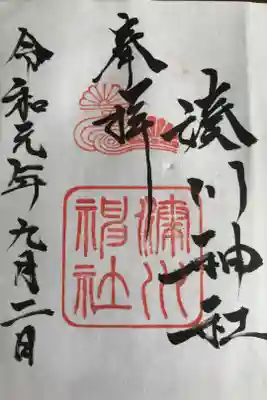 湊川神社
奉拝
湊川神社
令和元年九月二日